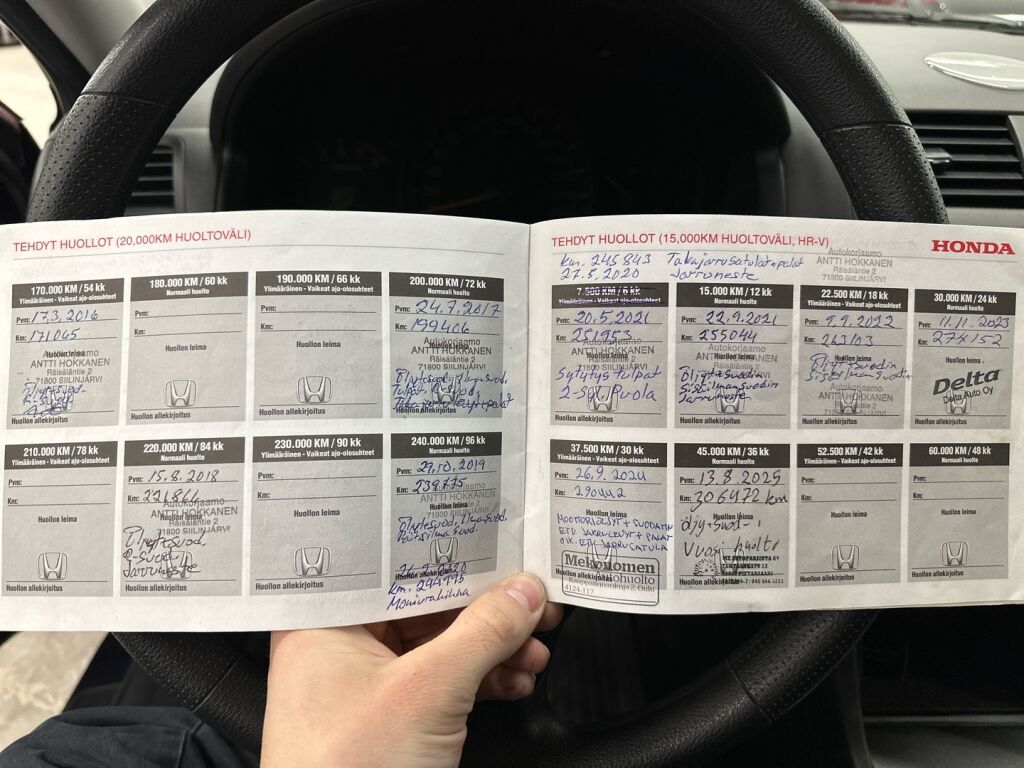 TEHDYT HUOLLOT (20,000KM HUOLTOVÄLI)
170.000 KM / 54 kk
Ylimääräinen - Vaikeat ajo-olosuhteet
Pvm: 17.3.2016
Km: 171065
Huollon leima
Autokorjaamo
ANTTI HOKKANEN
Räisäläntie 2
71800 SIILINJÄRVI
Huollon allekirjoitus
180.000 KM / 60 kk
Normaali huolto
Pvm:
Km:
Huollon leima
Huollon allekirjoitus
190.000 KM / 66 kk
Ylimääräinen - Vaikeat ajo-olosuhteet
Pvm:
Km:
Huollon leima
Huollon allekirjoitus
200.000 KM / 72 kk
Normaali huolto
Pvm: 24.7.2017
Km: 199406
Huollon leima
Autokorjaamo
ANTTI HOKKANEN
Räisäläntie 2
71800 SIILINJÄRVI
Huollon allekirjoitus
210.000 KM / 78 kk
Ylimääräinen - Vaikeat ajo-olosuhteet
Pvm:
Km:
Huollon leima
Huollon allekirjoitus
220.000 KM / 84 kk
Normaali huolto
Pvm: 15.8.2018
Km:
Huollon leima
Autokorjaamo
ANTTI HOKKANEN
Räisäläntie 2
71800 SIILINJÄRVI
Jarruneste
Huollon allekirjoitus
230.000 KM / 90 kk
Ylimääräinen - Vaikeat ajo-olosuhteet
Pvm:
Km:
Huollon leima
Huollon allekirjoitus
240.000 KM / 96 kk
Normaali huolto
Pvm: 29.10.2019
Km: 239775
Huollon leima
Autokorjaamo
ANTTI HOKKANEN
Räisäläntie 2
71800 SIILINJÄRVI
Huollon allekirjoitus
km. 244995
Moniurahihna
TEHDYT HUOLLOT (15,000KM HUOLTOVÄLI, HR-V)
HONDA
km. 245843 Takajarrusatulat+palat
27.5.2020 Jarruneste
Autokorjaamo
ANTTI HOKKANEN
Räisäläntie 2
71800 SIILINJÄRVI
7.500 KM / 6 kk
Pvm: 20.5.2021
Km: 251953
Huollon leima
Sytytys tulpat
Huollon allekirjoitus
15.000 KM / 12 kk
Normaali huolto
Pvm: 22.9.2021
Km: 255044
Autokorjaamo
ANTTI HOKKANEN
Räisäläntie 2
71800 SIILINJÄRVI
Öljyt+suodin
Sisäilmansuodin
Jarruneste
Huollon allekirjoitus
22.500 KM / 18 kk
Ylimääräinen - Vaikeat ajo-olosuhteet
Pvm: 9.9.2022
Km: 263103
Huollon leima
Öljyt+suodin
Sisäilmansuodin
Huollon allekirjoitus
30.000 KM / 24 kk
Normaali huolto
Pvm: 11.11.2023
Km: 274152
Huollon leima
Delta
Delta Auto Oy
Huollon allekirjoitus
37.500 KM / 30 kk
Ylimääräinen - Vaikeat ajo-olosuhteet
Pvm: 26.9.2024
Km: 290442
Huollon leima
MOOTTORIÖLJYT + SUODATIN
ETU JARRULEVYT + PALAT
OIK. ETU JARRUSATULA
Mekonomen
Autohuolto
45.000 KM / 36 kk
Normaali huolto
Pvm: 13.8.2025
Km: 306472 km
Huollon leima
öljy+suod-
Vuosi huolto
52.500 KM / 42 kk
Ylimääräinen - Vaikeat ajo-olosuhteet
Pvm:
Km:
Huollon leima
Huollon allekirjoitus
60.000 KM / 48 kk
Normaali huolto
Pvm:
Km:
Huollon leima
Huollon allekirjoitus